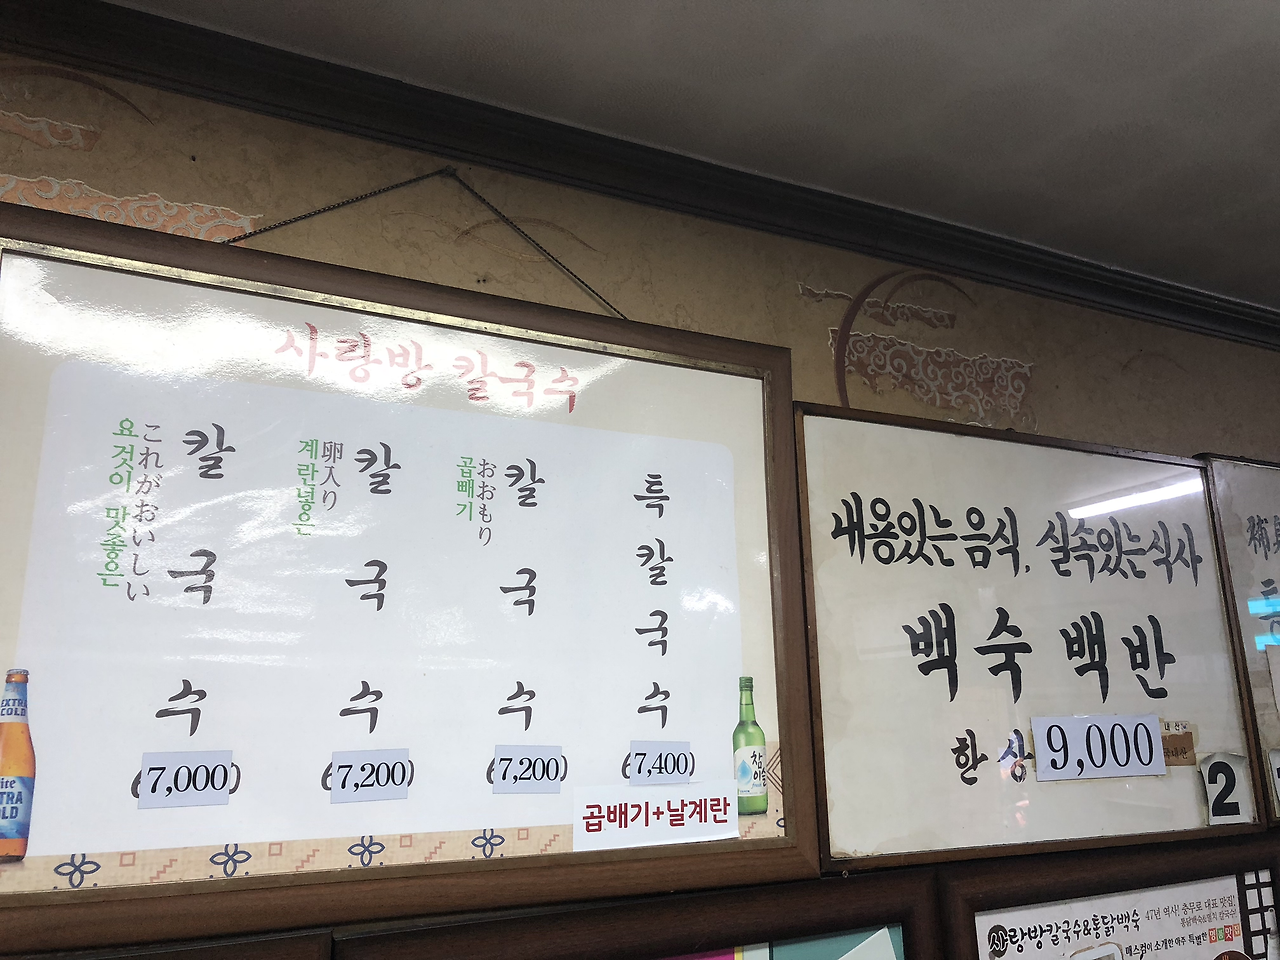 사랑방 칼국수
칼국수
これがおいしい
요것이 맛좋은
(7,000)
칼국수
卵入り
계란넣은
(7,200)
칼국수
おおもり
곱빼기
(7,200)
특칼국수
(7,400)
곱배기+날계란
EXTRA
COLD
참이슬
내용있는음식, 실속있는식사
백숙백반
한상 9,000
국내산
2
사랑방칼국수&통닭백숙
47년 역사! 충무로 대표 맛집!
매스컴이 소개한 아주 특별한 명품맛집